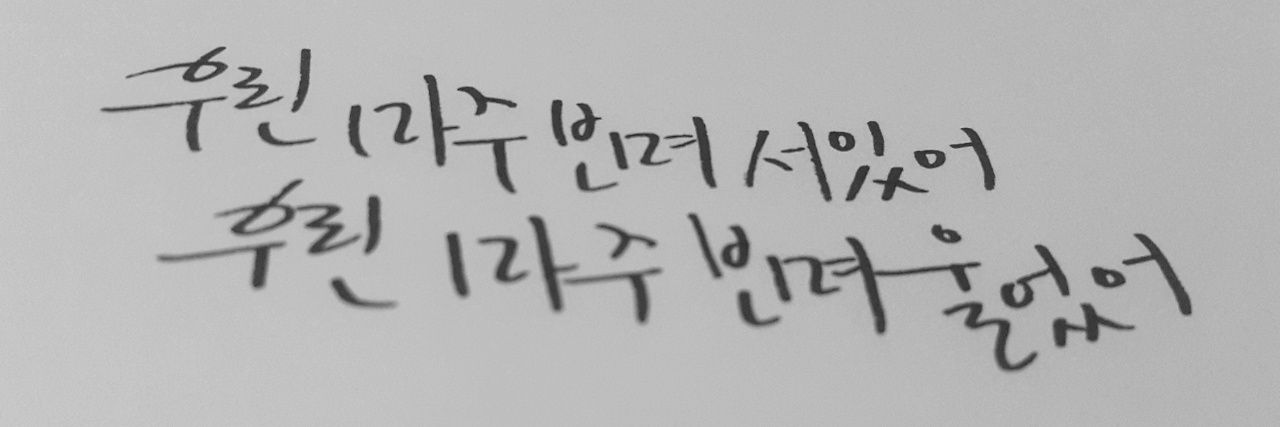 우린 마주 보며 서있어
우린 마주 보며 울었어